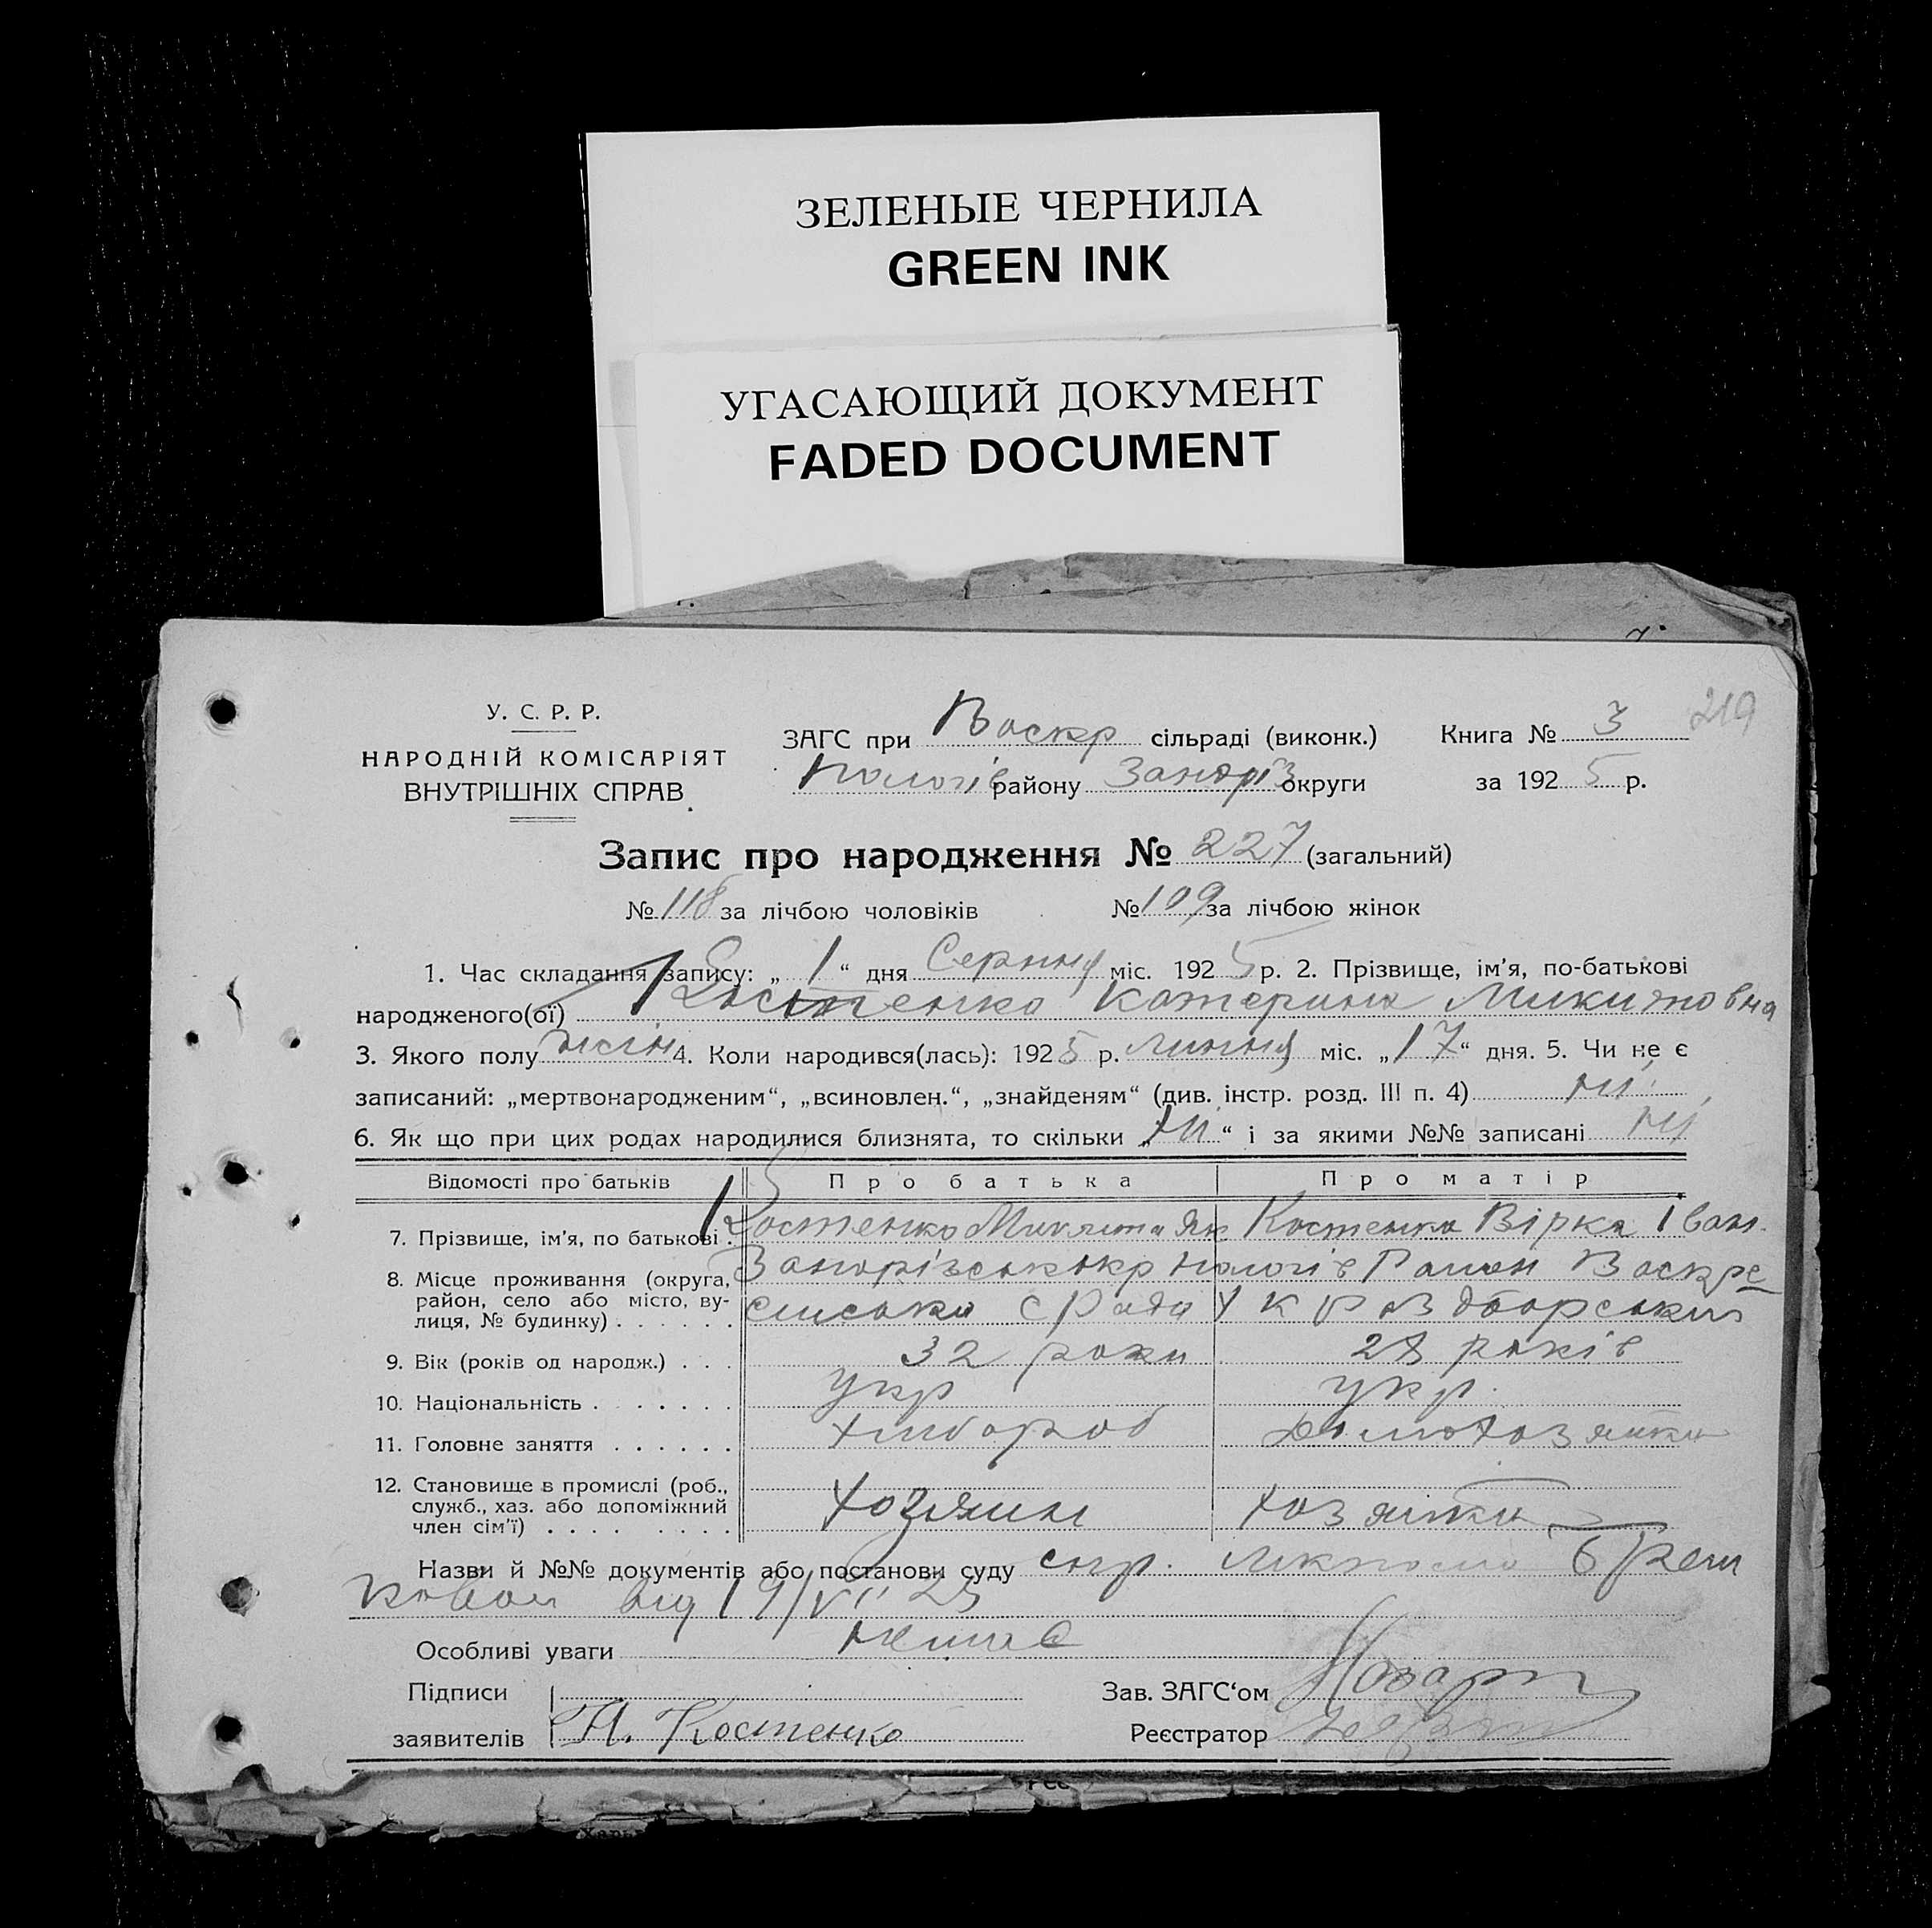 ЗЕЛЕНЫЕ ЧЕРНИЛА
GREEN INK
УГАСАЮЩИЙ ДОКУМЕНТ
FADED DOCUMENT
У. С. Р. Р.
НАРОДНІЙ КОМІСАРІЯТ
ВНУТРІШНІХ СПРАВ
ЗАГС при Васкр сільраді (виконк.)
Пологів району Запоріз округи
Книга № 3 219
за 1925 р.
Запис про народження № 227 (загальний)
№ 118 за лічбою чоловіків № 109 за лічбою жінок
1. Час складання запису: „ 1 “ дня Серпня міс. 1925 р. 2. Прізвище, ім’я, по-батькові
народженого(ої) Костенко Катерина Микитовна
3. Якого полу жін 4. Коли народився(лась): 1925 р. липня міс. „17“ дня. 5. Чи не є
записаний: „мертвонародженим“, „всиновлен.“, „знайденям“ (див. інстр. розд. III п. 4) ні
6. Як що при цих родах народилися близнята, то скільки „ні“ і за якими №№ записані ні
Відомості про батьків Про батька Про матір
7. Прізвище, ім’я, по батькові . Костенко Микита Як Костенко Вірка Іван.
8. Місце проживання (округа, район, село або місто, вулиця, № будинку) . . . . . . Пологів Район Васкре
сенська с Рада
9. Вік (років од народж.) . . . 32 роки 28 років
10. Національність . . . . . . . укр укр.
11. Головне заняття . . . . . . хлібороб домохазяйка
12. Становище в промислі (роб., служб., хаз. або допоміжний член сім’ї) . . . . . . . . . хозяин хазяйка
Назви й №№ документів або постанови суду
від 19/VII 25
Особливі уваги немає
Підписи
заявителів Н. Костенко
Зав. ЗАГС‘ом
Реєстратор